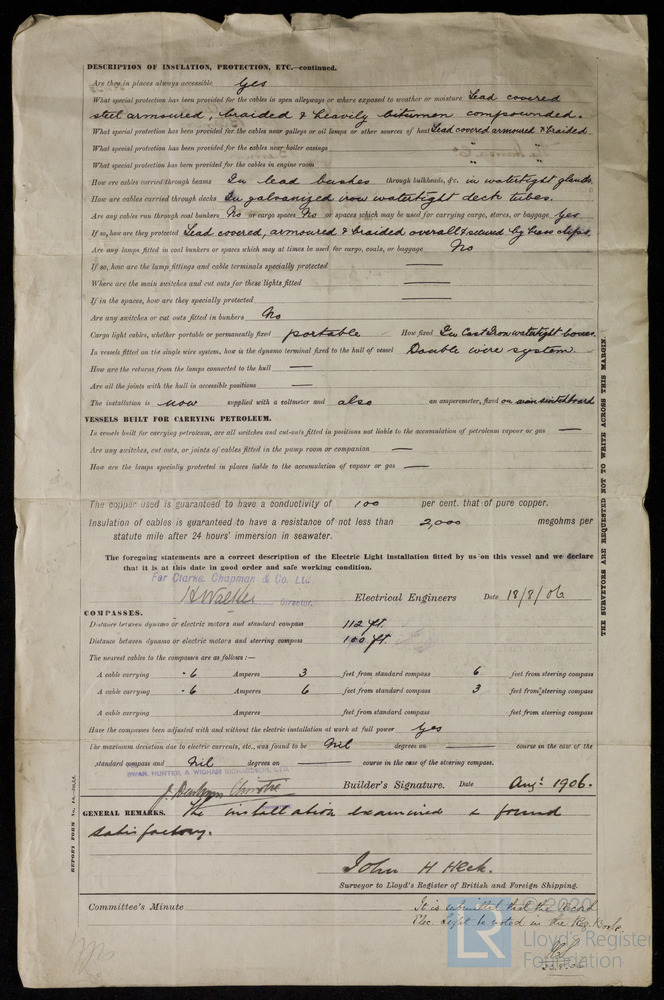 DESCRIPTION OF INSULATION, PROTECTION, ETC.—continued.
Are they in places always accessible Yes
What special protection has been provided for the cables in open alleyways or where exposed to weather or moisture Lead covered
steel armoured, braided & heavily bitumen compounded.
What special protection has been provided for the cables near galleys or oil lamps or other sources of heat Lead covered armoured & braided.
What special protection has been provided for the cables near boiler casings " "
What special protection has been provided for the cables in engine room " "
How are cables carried through beams In lead bushes through bulkheads, &c. in watertight glands
How are cables carried through decks In galvanized iron watertight deck tubes.
Are any cables run through coal bunkers No or cargo spaces No or spaces which may be used for carrying cargo, stores, or baggage Yes
If so, how are they protected Lead covered, armoured & braided overall & secured by brass clips.
Are any lamps fitted in coal bunkers or spaces which may at times be used for cargo, coals, or baggage No
If so, how are the lamp fittings and cable terminals specially protected —
Where are the main switches and cut outs for these lights fitted —
If in the spaces, how are they specially protected —
Are any switches or cut outs fitted in bunkers No
Cargo light cables, whether portable or permanently fixed portable How fixed In Cast Iron watertight boxes.
In vessels fitted on the single wire system, how is the dynamo terminal fixed to the hull of vessel Double wire system.
How are the returns from the lamps connected to the hull —
Are all the joints with the hull in accessible positions —
The installation is now supplied with a voltmeter and also an amperemeter, fixed on main switchboard
VESSELS BUILT FOR CARRYING PETROLEUM.
In vessels built for carrying petroleum, are all switches and cut-outs fitted in positions not liable to the accumulation of petroleum vapour or gas —
Are any switches, cut outs, or joints of cables fitted in the pump room or companion —
How are the lamps specially protected in places liable to the accumulation of vapour or gas —
The copper used is guaranteed to have a conductivity of 100 per cent. that of pure copper.
Insulation of cables is guaranteed to have a resistance of not less than 2,000 megohms per
statute mile after 24 hours' immersion in seawater.
The foregoing statements are a correct description of the Electric Light installation fitted by us on this vessel and we declare
that it is at this date in good order and safe working condition.
For Clarke, Chapman & Co. Ltd
Director. Electrical Engineers Date 18/8/06
COMPASSES.
Distance between dynamo or electric motors and standard compass 112 ft.
Distance between dynamo or electric motors and steering compass 100 ft.
The nearest cables to the compasses are as follows:—
A cable carrying .6 Amperes 3 feet from standard compass 6 feet from steering compass
A cable carrying .6 Amperes 6 feet from standard compass 3 feet from steering compass
A cable carrying Amperes feet from standard compass feet from steering compass
Have the compasses been adjusted with and without the electric installation at work at full power Yes
The maximum deviation due to electric currents, etc., was found to be Nil degrees on — course in the case of the
standard compass and Nil degrees on — course in the case of the steering compass.
SWAN, HUNTER, & WIGHAM RICHARDSON, LTD.
Builder's Signature. Date Augt 1906.
GENERAL REMARKS. The installation examined & found
satisfactory.
John H Heck.
Surveyor to Lloyd's Register of British and Foreign Shipping.
Committee's Minute It is submitted that the Record
Elec. Light be noted in the Reg. Book.
THE SURVEYORS ARE REQUESTED NOT TO WRITE ACROSS THIS MARGIN.
LR
© 2020
Lloyd's Register
Foundation